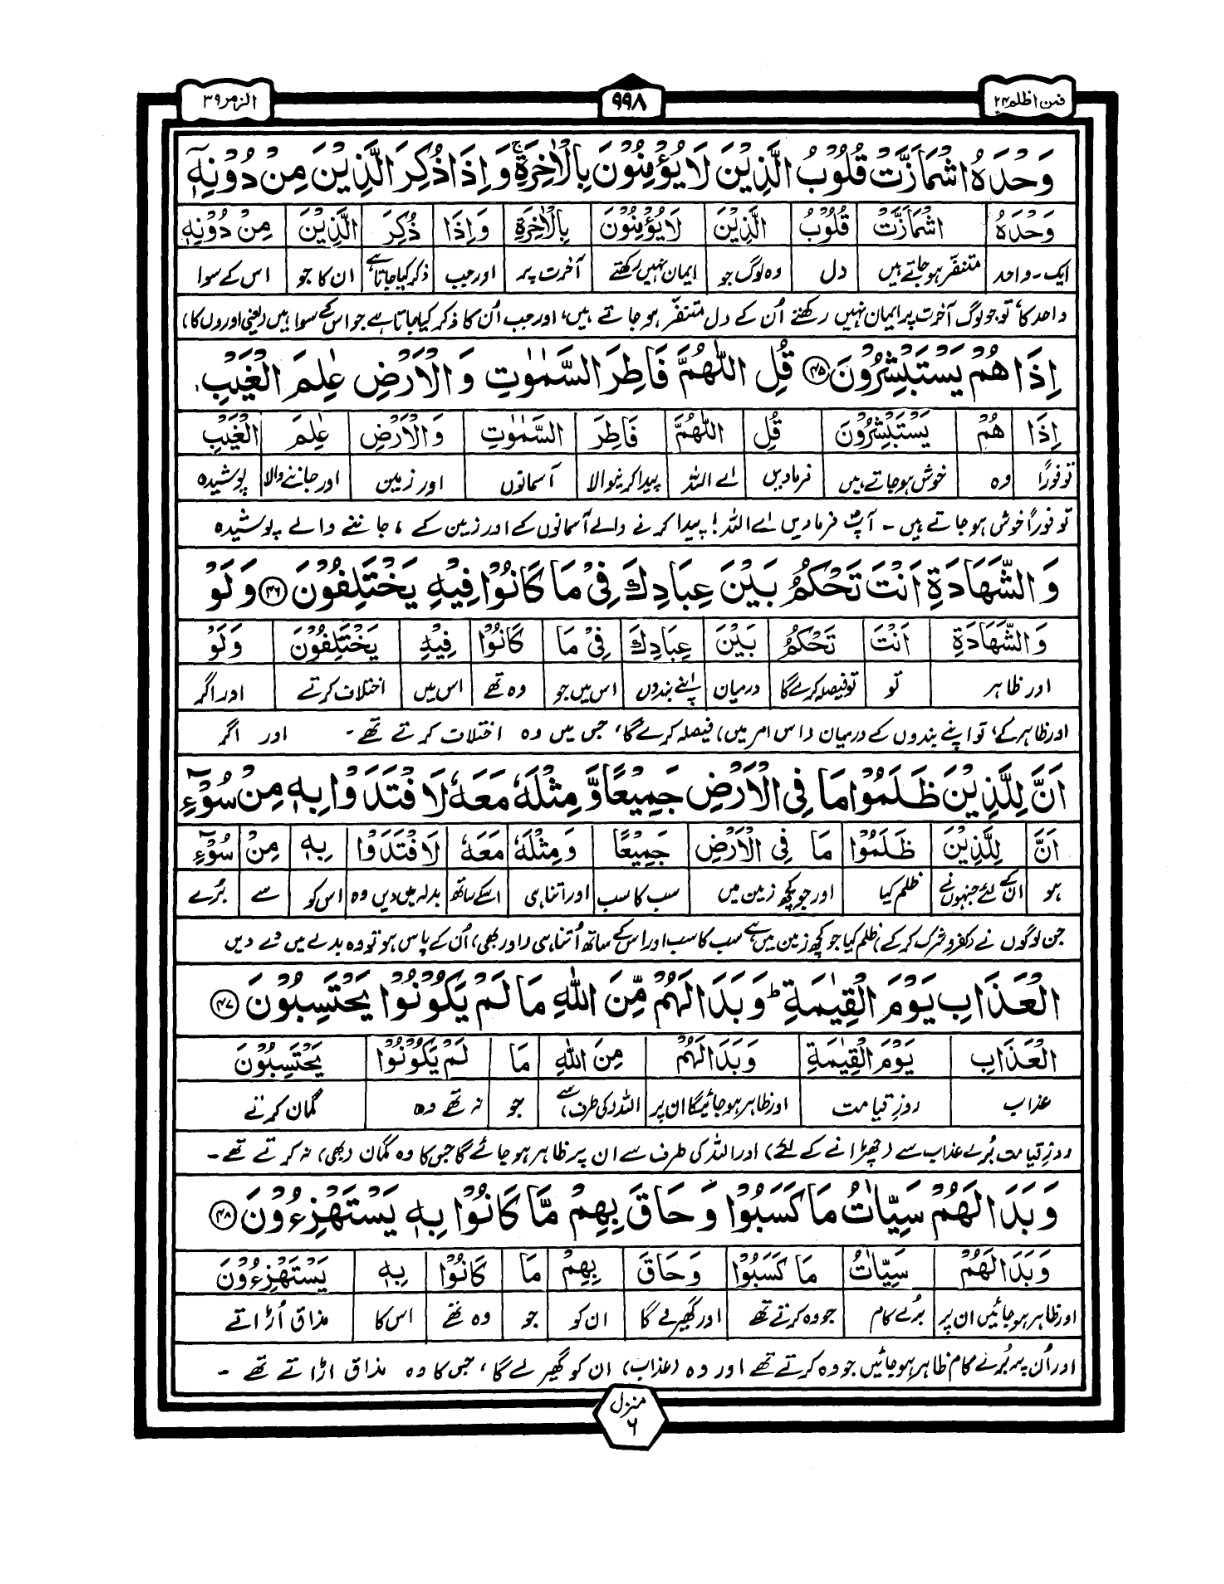 الزمر ۳۹
۹۹۸
فمن اظلم ۲۴
وَحْدَهُ اشْمَاَزَّتْ قُلُوْبُ الَّذِيْنَ لَا يُؤْمِنُوْنَ بِالْاٰخِرَةِ ۚ وَاِذَا ذُكِرَ الَّذِيْنَ مِنْ دُوْنِهٖٓ
وَحْدَهُ اشْمَاَزَّتْ قُلُوْبُ الَّذِيْنَ لَا يُؤْمِنُوْنَ بِالْاٰخِرَةِ وَاِذَا ذُكِرَ الَّذِيْنَ مِنْ دُوْنِهٖٓ
ایک ۔ واحد متنفّر ہوجاتے ہیں دل وہ لوگ جو ایمان نہیں رکھتے آخرت پر اور جب ذکر کیا جاتا ہے ان کا جو اس کے سوا
واحد کا، تو جو لوگ آخرت پر ایمان نہیں رکھتے اُن کے دل متنفّر ہو جاتے ہیں، اور جب اُن کا ذکر کیا جاتا ہے جو اس کے سوا ہیں (یعنی اوروں کا)
اِذَا هُمْ يَسْتَبْشِرُوْنَ ۴۵ قُلِ اللّٰهُمَّ فَاطِرَ السَّمٰوٰتِ وَالْاَرْضِ عٰلِمَ الْغَيْبِ
اِذَا هُمْ يَسْتَبْشِرُوْنَ قُلِ اللّٰهُمَّ فَاطِرَ السَّمٰوٰتِ وَالْاَرْضِ عٰلِمَ الْغَيْبِ
تو فوراً وہ خوش ہوجاتے ہیں فرمادیں اے اللہ پیدا کرنیوالا آسمانوں اور زمین اور جاننے والا پوشیدہ
تو فوراً خوش ہو جاتے ہیں ۔ آپؐ فرما دیں اے اللہ! پیدا کرنے والے آسمانوں کے اور زمین کے ، جاننے والے پوشیدہ
وَالشَّهَادَةِ اَنْتَ تَحْكُمُ بَيْنَ عِبَادِكَ فِيْ مَا كَانُوْا فِيْهِ يَخْتَلِفُوْنَ ۴۶ وَلَوْ
وَالشَّهَادَةِ اَنْتَ تَحْكُمُ بَيْنَ عِبَادِكَ فِيْ مَا كَانُوْا فِيْهِ يَخْتَلِفُوْنَ وَلَوْ
اور ظاہر تو تو فیصلہ کرے گا درمیان اپنے بندوں اس میں جو وہ تھے اس میں اختلاف کرتے اور اگر
اور ظاہر کے، تو اپنے بندوں کے درمیان (اس امر میں) فیصلہ کرے گا، جس میں وہ اختلاف کرتے تھے ۔ اور اگر
اَنَّ لِلَّذِيْنَ ظَلَمُوْا مَا فِي الْاَرْضِ جَمِيْعًا وَّمِثْلَهٗ مَعَهٗ لَافْتَدَوْا بِهٖ مِنْ سُوْٓءِ
اَنَّ لِلَّذِيْنَ ظَلَمُوْا مَا فِي الْاَرْضِ جَمِيْعًا وَمِثْلَهٗ مَعَهٗ لَافْتَدَوْا بِهٖ مِنْ سُوْٓءِ
ہو ان کے لئے جنہوں نے ظلم کیا اور جو کچھ زمین میں سب کا سب اور اتنا ہی اسکے ساتھ بدلہ میں دیں وہ اس کو سے بُرے
جن لوگوں نے (کفر و شرک کر کے) ظلم کیا جو کچھ زمین میں ہے سب کا سب اور اس کے ساتھ اُتنا ہی (اور بھی) اُن کے پاس ہو تو وہ بدلے میں دے دیں
الْعَذَابِ يَوْمَ الْقِيٰمَةِ ؕ وَبَدَا لَهُمْ مِّنَ اللّٰهِ مَا لَمْ يَكُوْنُوْا يَحْتَسِبُوْنَ ۴۷
الْعَذَابِ يَوْمَ الْقِيٰمَةِ وَبَدَا لَهُمْ مِنَ اللّٰهِ مَا لَمْ يَكُوْنُوْا يَحْتَسِبُوْنَ
عذاب روزِ قیامت اور ظاہر ہوجائیگا ان پر اللہ (کی طرف) سے جو نہ تھے وہ گمان کرتے
روزِ قیامت بُرے عذاب سے (چھڑانے کے لئے) اور اللہ کی طرف سے ان پر ظاہر ہو جائے گا جس کا وہ گمان (بھی) نہ کرتے تھے ۔
وَبَدَا لَهُمْ سَيِّاٰتُ مَا كَسَبُوْا وَحَاقَ بِهِمْ مَّا كَانُوْا بِهٖ يَسْتَهْزِءُوْنَ ۴۸
وَبَدَا لَهُمْ سَيِّاٰتُ مَا كَسَبُوْا وَحَاقَ بِهِمْ مَا كَانُوْا بِهٖ يَسْتَهْزِءُوْنَ
اور ظاہر ہوجائیں ان پر بُرے کام جو وہ کرتے تھے اور گھیرلے گا ان کو جو وہ تھے اس کا مذاق اُڑاتے
اور اُن پر بُرے کام ظاہر ہوجائیں جو وہ کرتے تھے اور وہ (عذاب) ان کو گھیر لے گا ، جس کا وہ مذاق اڑاتے تھے ۔
منزل
۶